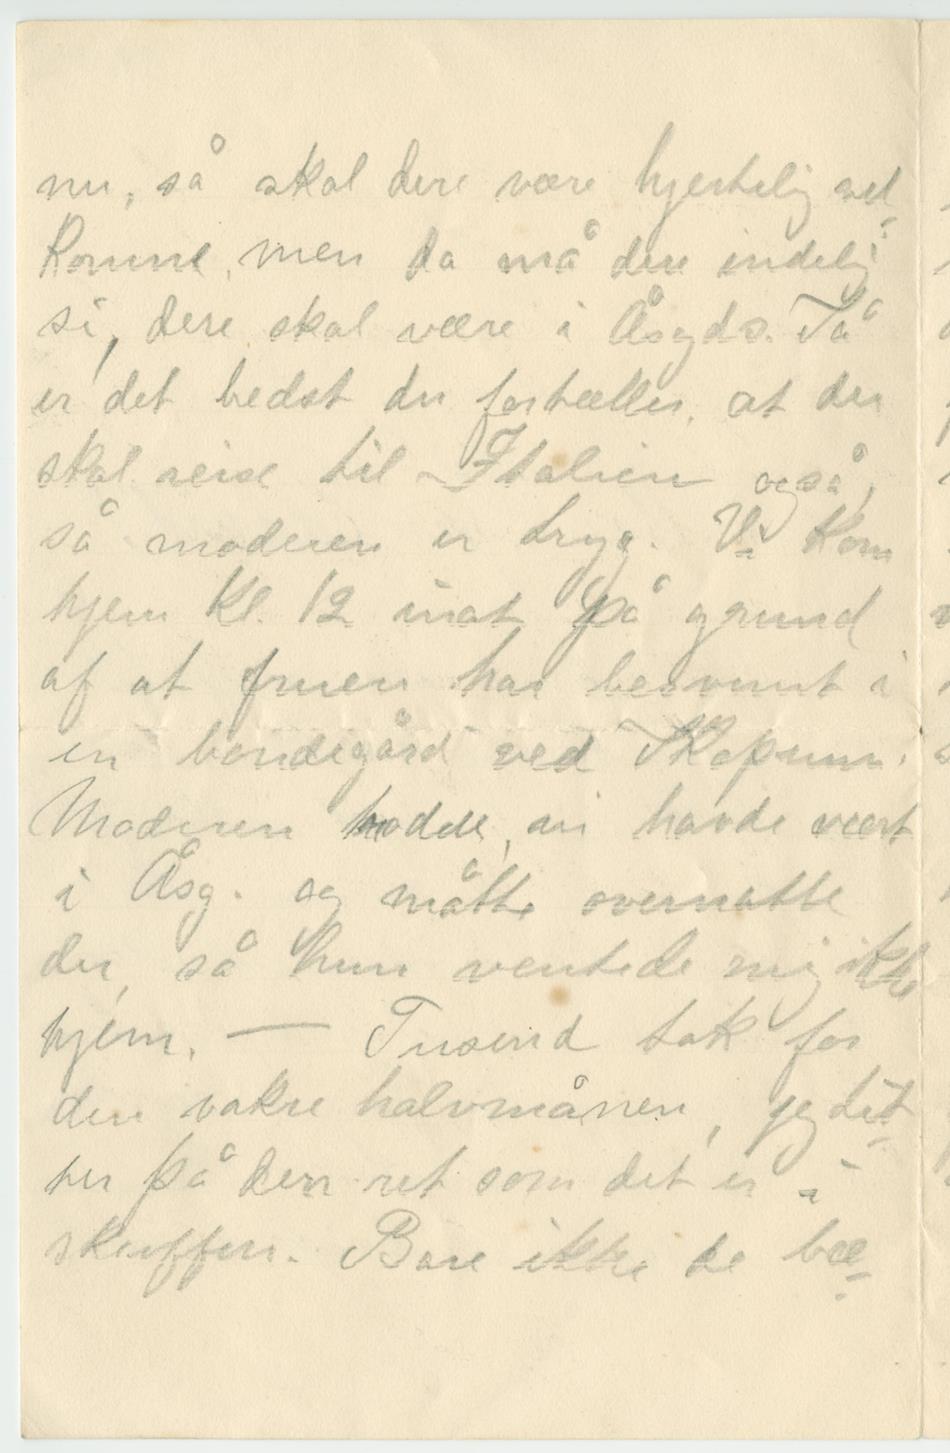 nu, så skal dere være hjertelig vel-
komne, men da må dere endelig
si, dere skal være i Åsgds. Så
er det bedst du fortæller, at du
skal reise til Italien også,
så moderen er tryg. Vi kom
hjem kl. 12 inat på grund
af at fruen har besvimt i
en bondegård ved Skopum.
Moderen trodde, vi havde vært
i Åsg. og måtte overnatte
der, så hun ventede mig ikke
hjem. — Tusend tak for
den vakre halvmånen, jeg tit-
ter på den ret som det er i
skuffen. Bare ikke de bæ-